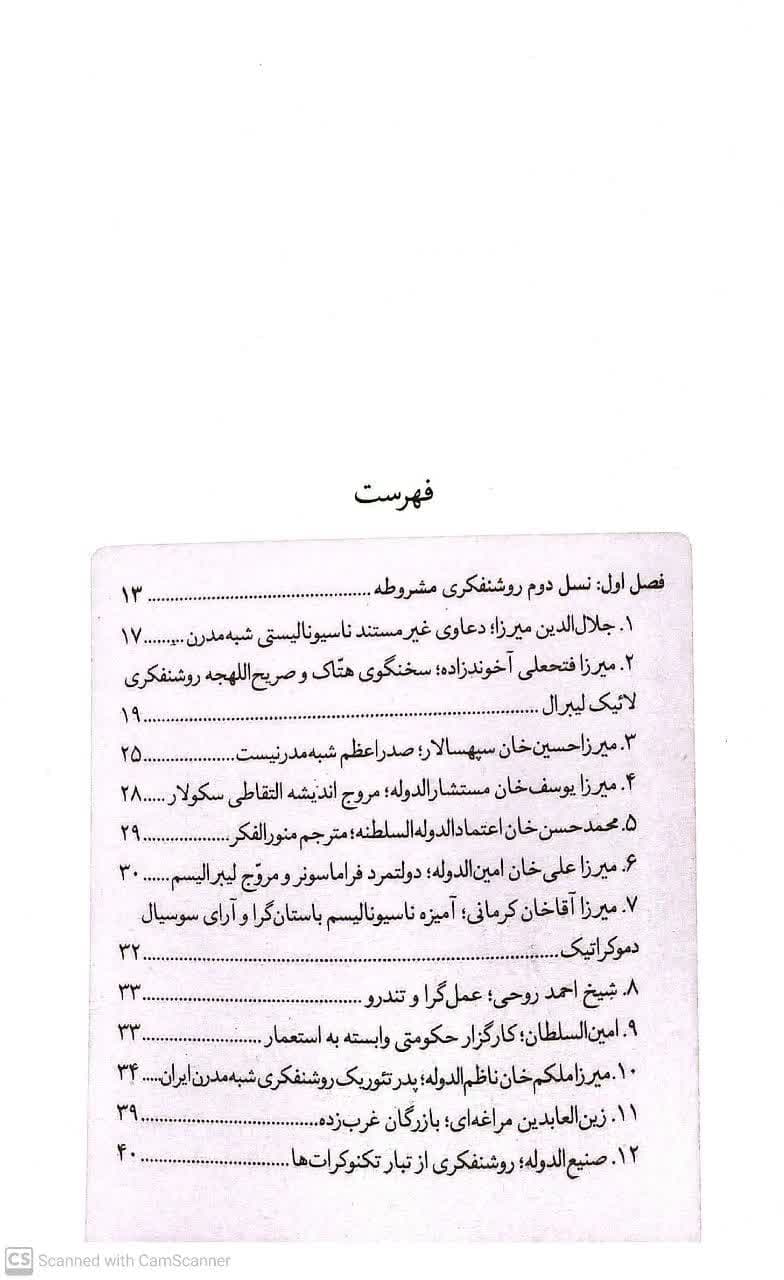 فهرست
فصل اول: نسل دوم روشنفکری مشروطه ............................................ ۱۳
۱. جلال‌الدین میرزا؛ دعاوی غیرمستند ناسیونالیستی شبه‌مدرن ......... ۱۷
۲. میرزا فتحعلی آخوندزاده؛ سخنگوی هتّاک و صریح‌اللهجه روشنفکری
لائیک لیبرال .............................................................................. ۱۹
۳. میرزاحسین‌خان سپهسالار؛ صدراعظم شبه‌مدرنیست .................... ۲۵
۴. میرزا یوسف‌خان مستشارالدوله؛ مروج اندیشه التقاطی سکولار ..... ۲۸
۵. محمدحسن‌خان اعتمادالدوله‌السلطنه؛ مترجم منورالفکر ................... ۲۹
۶. میرزا علی‌خان امین‌الدوله؛ دولتمرد فراماسونر و مروّج لیبرالیسم ...... ۳۰
۷. میرزا آقاخان کرمانی؛ آمیزه ناسیونالیسم باستان‌گرا و آرای سوسیال
دموکراتیک ................................................................................. ۳۲
۸. شیخ احمد روحی؛ عمل‌گرا و تندرو ........................................... ۳۳
۹. امین‌السلطان؛ کارگزار حکومتی وابسته به استعمار ........................ ۳۳
۱۰. میرزاملکم‌خان ناظم‌الدوله؛ پدر تئوریک روشنفکری شبه‌مدرن ایران .... ۳۴
۱۱. زین‌العابدین مراغه‌ای؛ بازرگان غرب‌زده ................................... ۳۹
۱۲. صنیع‌الدوله؛ روشنفکری از تبار تکنوکرات‌ها .............................. ۴۰
CS Scanned with CamScanner